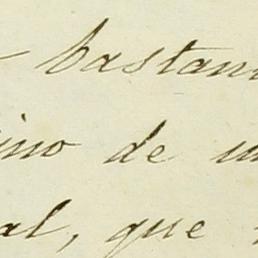 bastan
ino de un
al, que